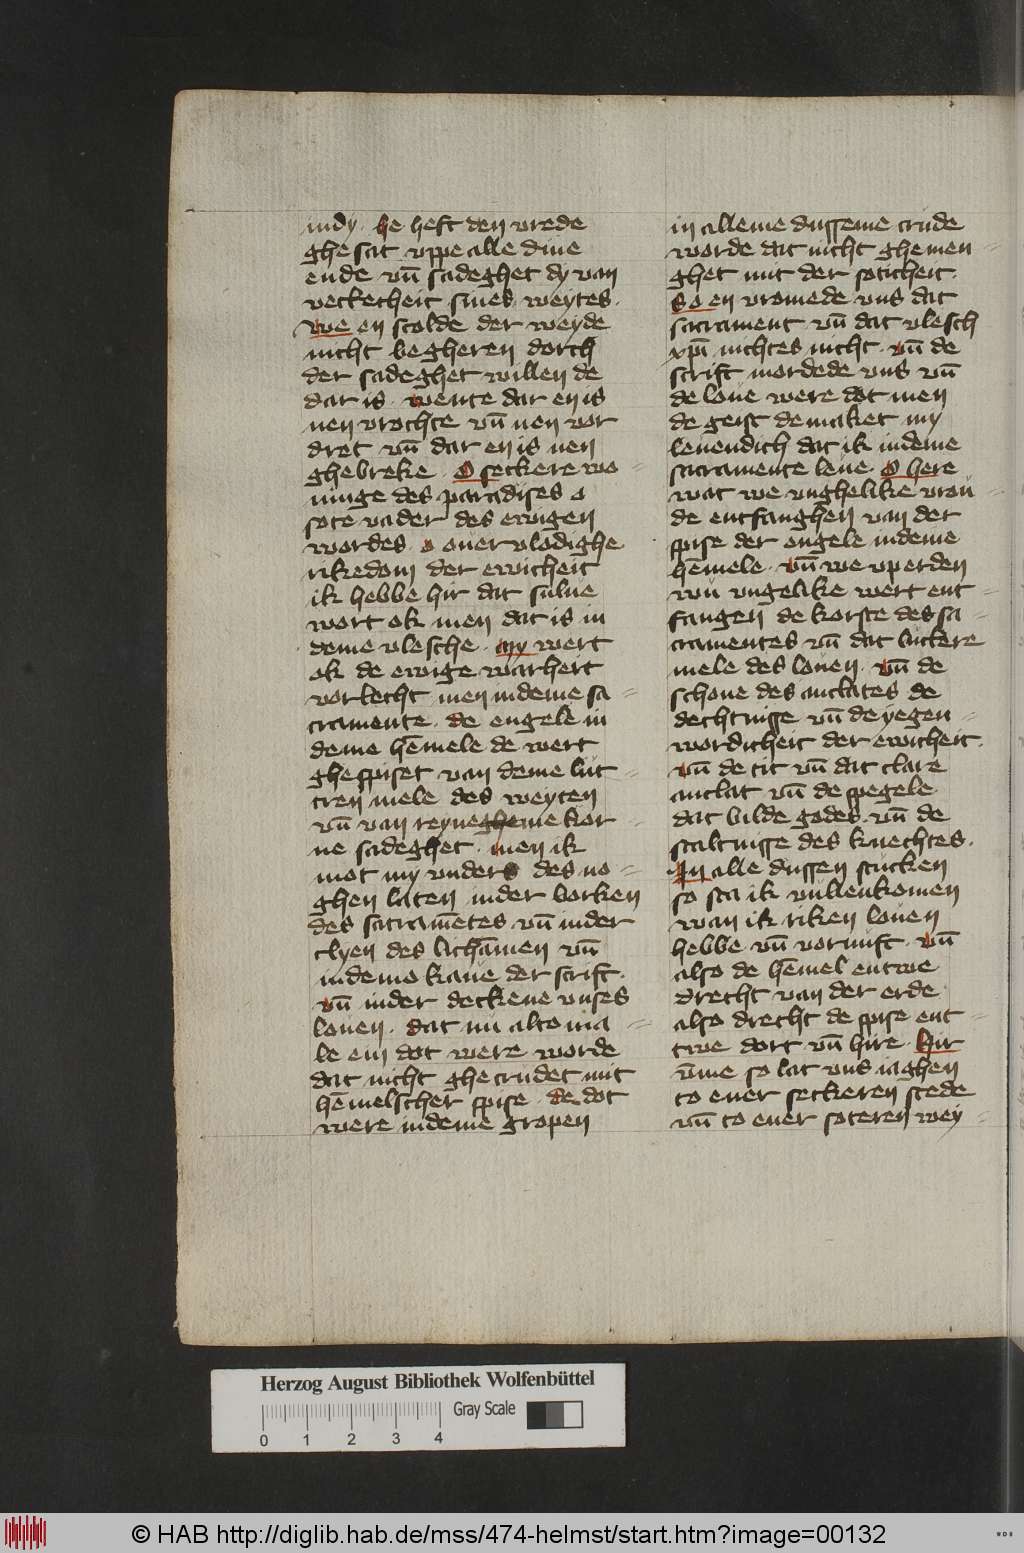 in dy . he heft den vrede
ghe sat vppe alle dine
ende vn̄ sadeghet dy van
vetketheit sines weytes .
we en scolde der weyde
nicht begheren dorch
der sadeghet willen de
dar is . wente dar en is
nen vrochte vn̄ nen vor
dret vn̄ dar en is nen
ghebreke . O seckere wo =
ninge des paradises o
sote vader des ewigen
wordes . o ouer vlodighe
rikedom der ewicheit
ik hebbe hir dat sulue
wort ok men dat is in
deme vlesche . my wert
ok de ewige warheit
vorlecht men in deme sa =
cramente . de engele in
deme hēmele de wert
ghespiset van deme lut =
tren mele des weyten
vn̄ van reyneme kor =
ne sadeghet . men ik
mot my vnders des no =
ghen laten in der borken
des sacramētes vn̄ in der
clyen des lichāmen vn̄
in deme kaue der scrift .
vn̄ in der deckene vnses
louen . dat nu alto ma =
le ein dot were worde
dat nicht ghecrudet mit
hēmelscher spise . de dot
were in deme gropen
in alleme dusseme crude
worde dat nicht ghemen =
ghet mit der soticheit .
So en vromede vns dat
sacrament vn̄ dat vlesch
xp̄i nichtes nicht . vn̄ de
scrift mordede vns vn̄
de loue were dot men
de geist de maket my
leuendich dat ik in deme
sacramente leue . O here
wat we vnghelike vrou =
de entfanghen van der
spise der engele in deme
hēmele . vn̄ we vp erden
wu vngelike wert ent =
fangen de korste des sa =
cramentes vn̄ dat luttere
mele des louen . vn̄ de
schone des anclates de
dechtnisse vn̄ de yegen =
wordicheit der ewicheit .
vn̄ de tit vn̄ dat clare
anclat vn̄ de spegele
dat bilde godes . vn̄ de
staltnisse des knechtes .
In alle dussen stucken
so sta ik vullenkomen
wan ik riken louen
hebbe vn̄ vornuft . vn̄
also de hēmel entwe
drecht van der erde
also drecht de spise ent =
twe dort vn̄ hire . hir
vm̄e so lat vns iaghen
to ener seckeren stede
vn̄ to ener soteren wey =
Herzog August Bibliothek Wolfenbüttel
Gray Scale
0 1 2 3 4
© HAB http://diglib.hab.de/mss/474-helmst/start.htm?image=00132